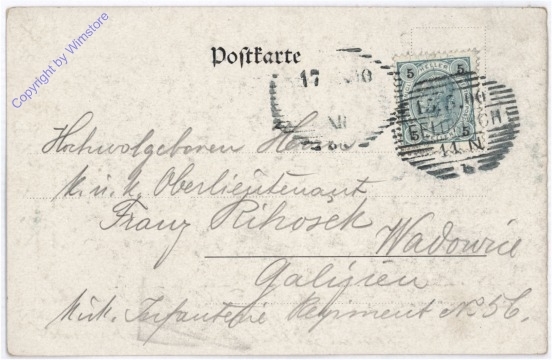 Copyright by Wimstore
Postkarte
17
5 5
5 5
11 N
Hochwolgeboren Herrn
K. u. k. Oberlieutenant
Franz Rihosek
Wadowice
Galizien
K.u.k. Infanterie Regiment No 56.